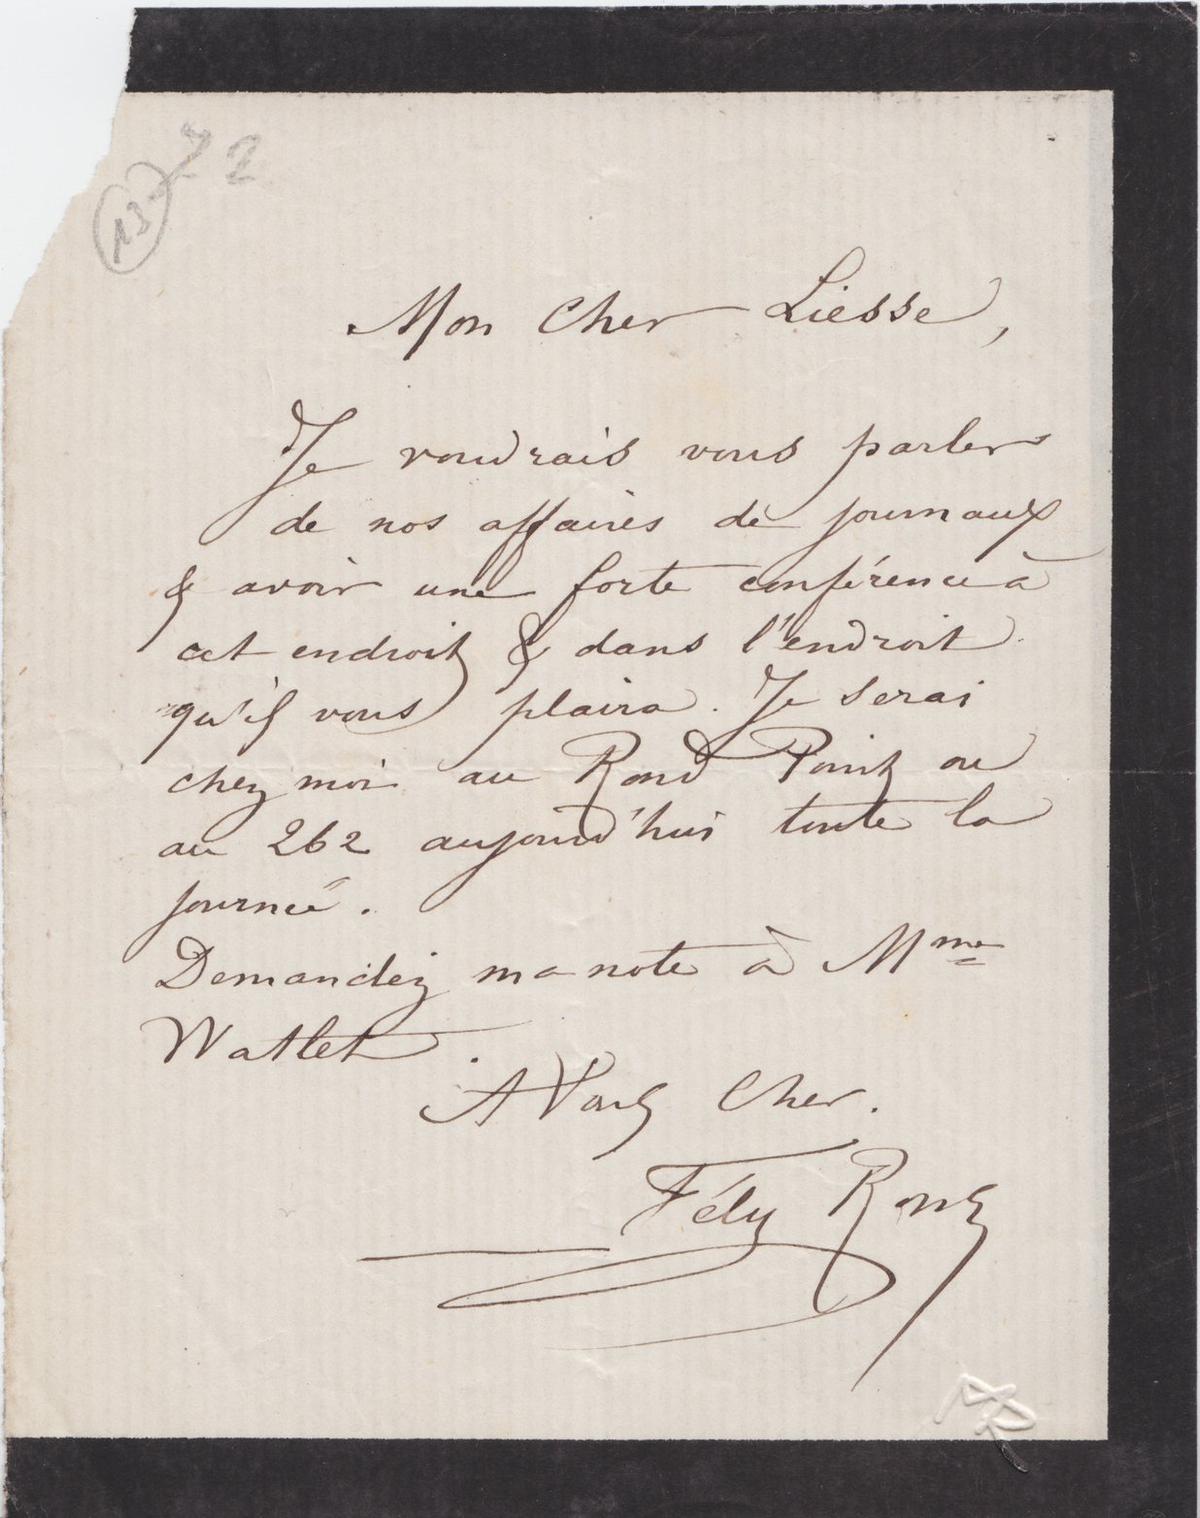 13 22
Mon Cher Liesse,
Je voudrais vous parler
de nos affaires de journaux
& avoir une forte conférence à
cet endroit & dans l'endroit
qu'il vous plaira. Je serai
chez moi au Rond Point ou
au 262 aujourd'hui toute la
journée.
Demandez ma note à Mme
Watlet.
A Vous Cher.
Fély Rops